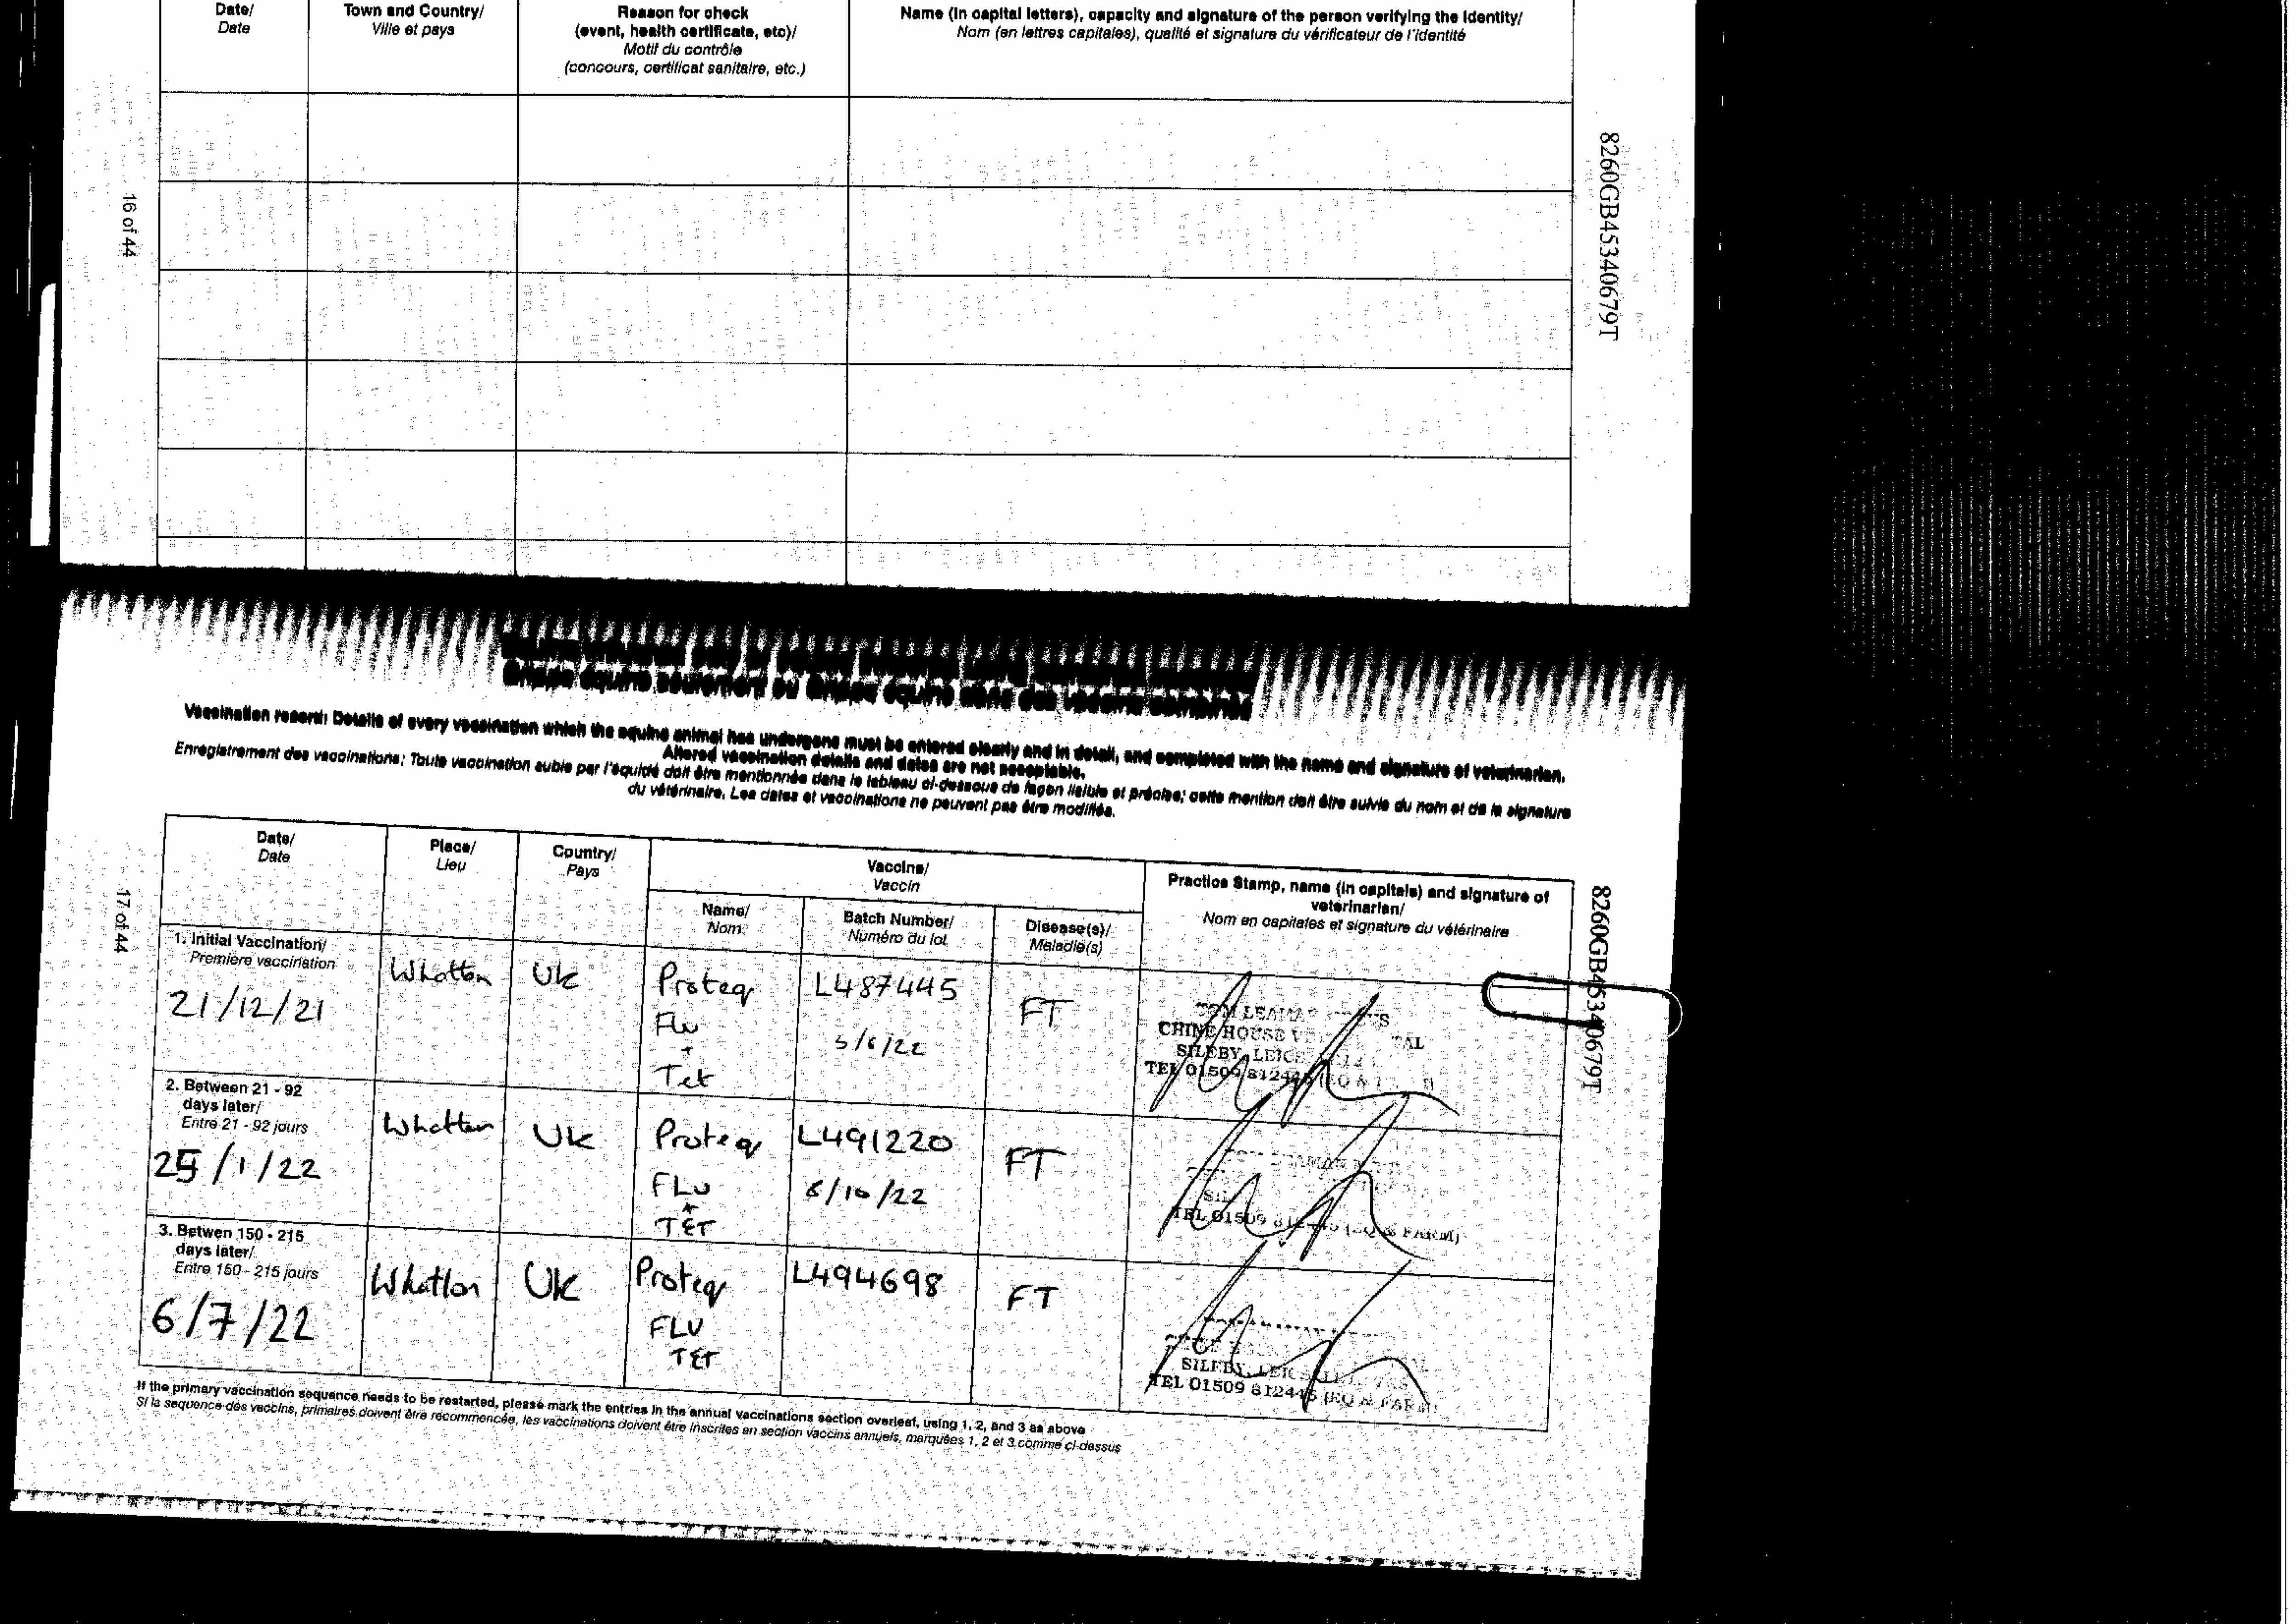 Date/
Date
Town and Country/
Ville et pays
Reason for check
(event, health certificate, etc)/
Motif du contrôle
(concours, certificat sanitaire, etc.)
Name (in capital letters), capacity and signature of the person verifying the identity/
Nom (en lettres capitales), qualité et signature du vérificateur de l'identité
16 of 44
8260GB45340679T
Grippe équine seulement ou Grippe équine dans des vaccins combinés
Vaccination record: Details of every vaccination which the equine animal has undergone must be entered clearly and in detail, and completed with the name and signature of veterinarian.
Altered vaccination details and dates are not acceptable.
Enregistrement des vaccinations: Toute vaccination subie par l'équidé doit être mentionnée dans le tableau ci-dessous de façon lisible et précise; cette mention doit être suivie du nom et de la signature
du vétérinaire. Les dates et vaccinations ne peuvent pas être modifiés.
17 of 44
8260GB45340679T
Date/
Date
Place/
Lieu
Country/
Pays
Vaccine/
Vaccin
Name/
Nom
Batch Number/
Numéro du lot
Disease(s)/
Maladie(s)
Practice Stamp, name (in capitals) and signature of
veterinarian/
Nom en capitales et signature du vétérinaire
1. Initial Vaccination/
Première vaccination
21/12/21
Whatton
Uk
Proteq
Flu
+
Tet
L487445
5/6/22
FT
CHINE HOUSE
SILEBY, LEICS
TEL 01509 812445 (EQ &
2. Between 21 - 92
days later/
Entre 21 - 92 jours
25/1/22
Whatton
Uk
Proteq
FLU
+
TET
L491220
8/10/22
FT
TEL 01509 & FARM)
3. Betwen 150 - 215
days later/
Entre 150 - 215 jours
6/7/22
Whatton
UK
Proteq
FLU
TET
L494698
FT
SILEBY,
TEL 01509 812445 (EQ & FARM)
If the primary vaccination sequence needs to be restarted, please mark the entries in the annual vaccinations section overleaf, using 1, 2, and 3 as above
Si la sequence des vaccins, primaires doivent être recommencée, les vaccinations doivent être inscrites en section vaccins annuels, marquées 1, 2 et 3 comme ci-dessus